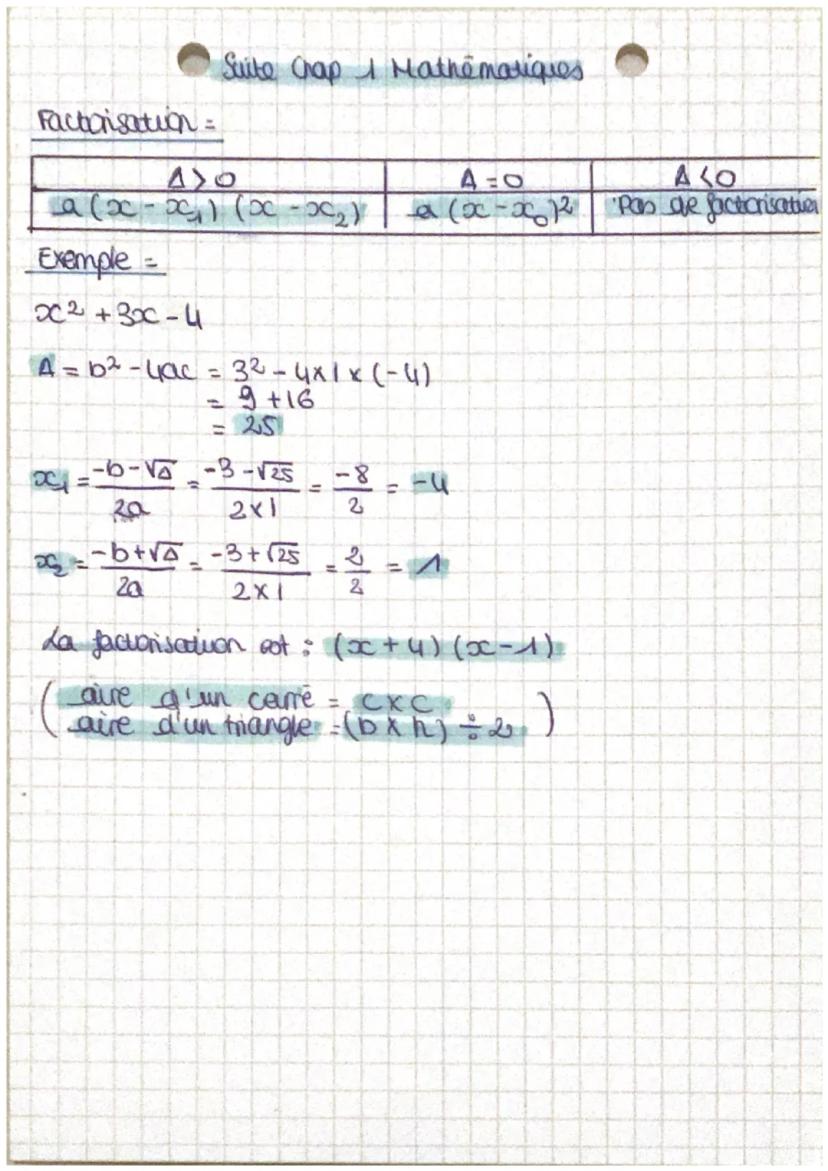 Suite Chap 1 Mathématiques
Factorisation =
Δ > 0 Δ = 0 Δ < 0
a (x - x₁) (x - x₂) a (x - x₀)² Pas de factorisation
Exemple =
x² + 3x - 4
Δ = b² - 4ac = 3² - 4 x 1 x (-4)
= 9 + 16
= 25
x₁ = (-b - √Δ) / 2a = (-3 - √25) / (2 x 1) = -8/2 = -4
x₂ = (-b + √Δ) / 2a = (-3 + √25) / (2 x 1) = 2/2 = 1
La factorisation est : (x + 4) (x - 1)
( aire d'un carré = c x c
aire d'un triangle = (b x h) ÷ 2 )